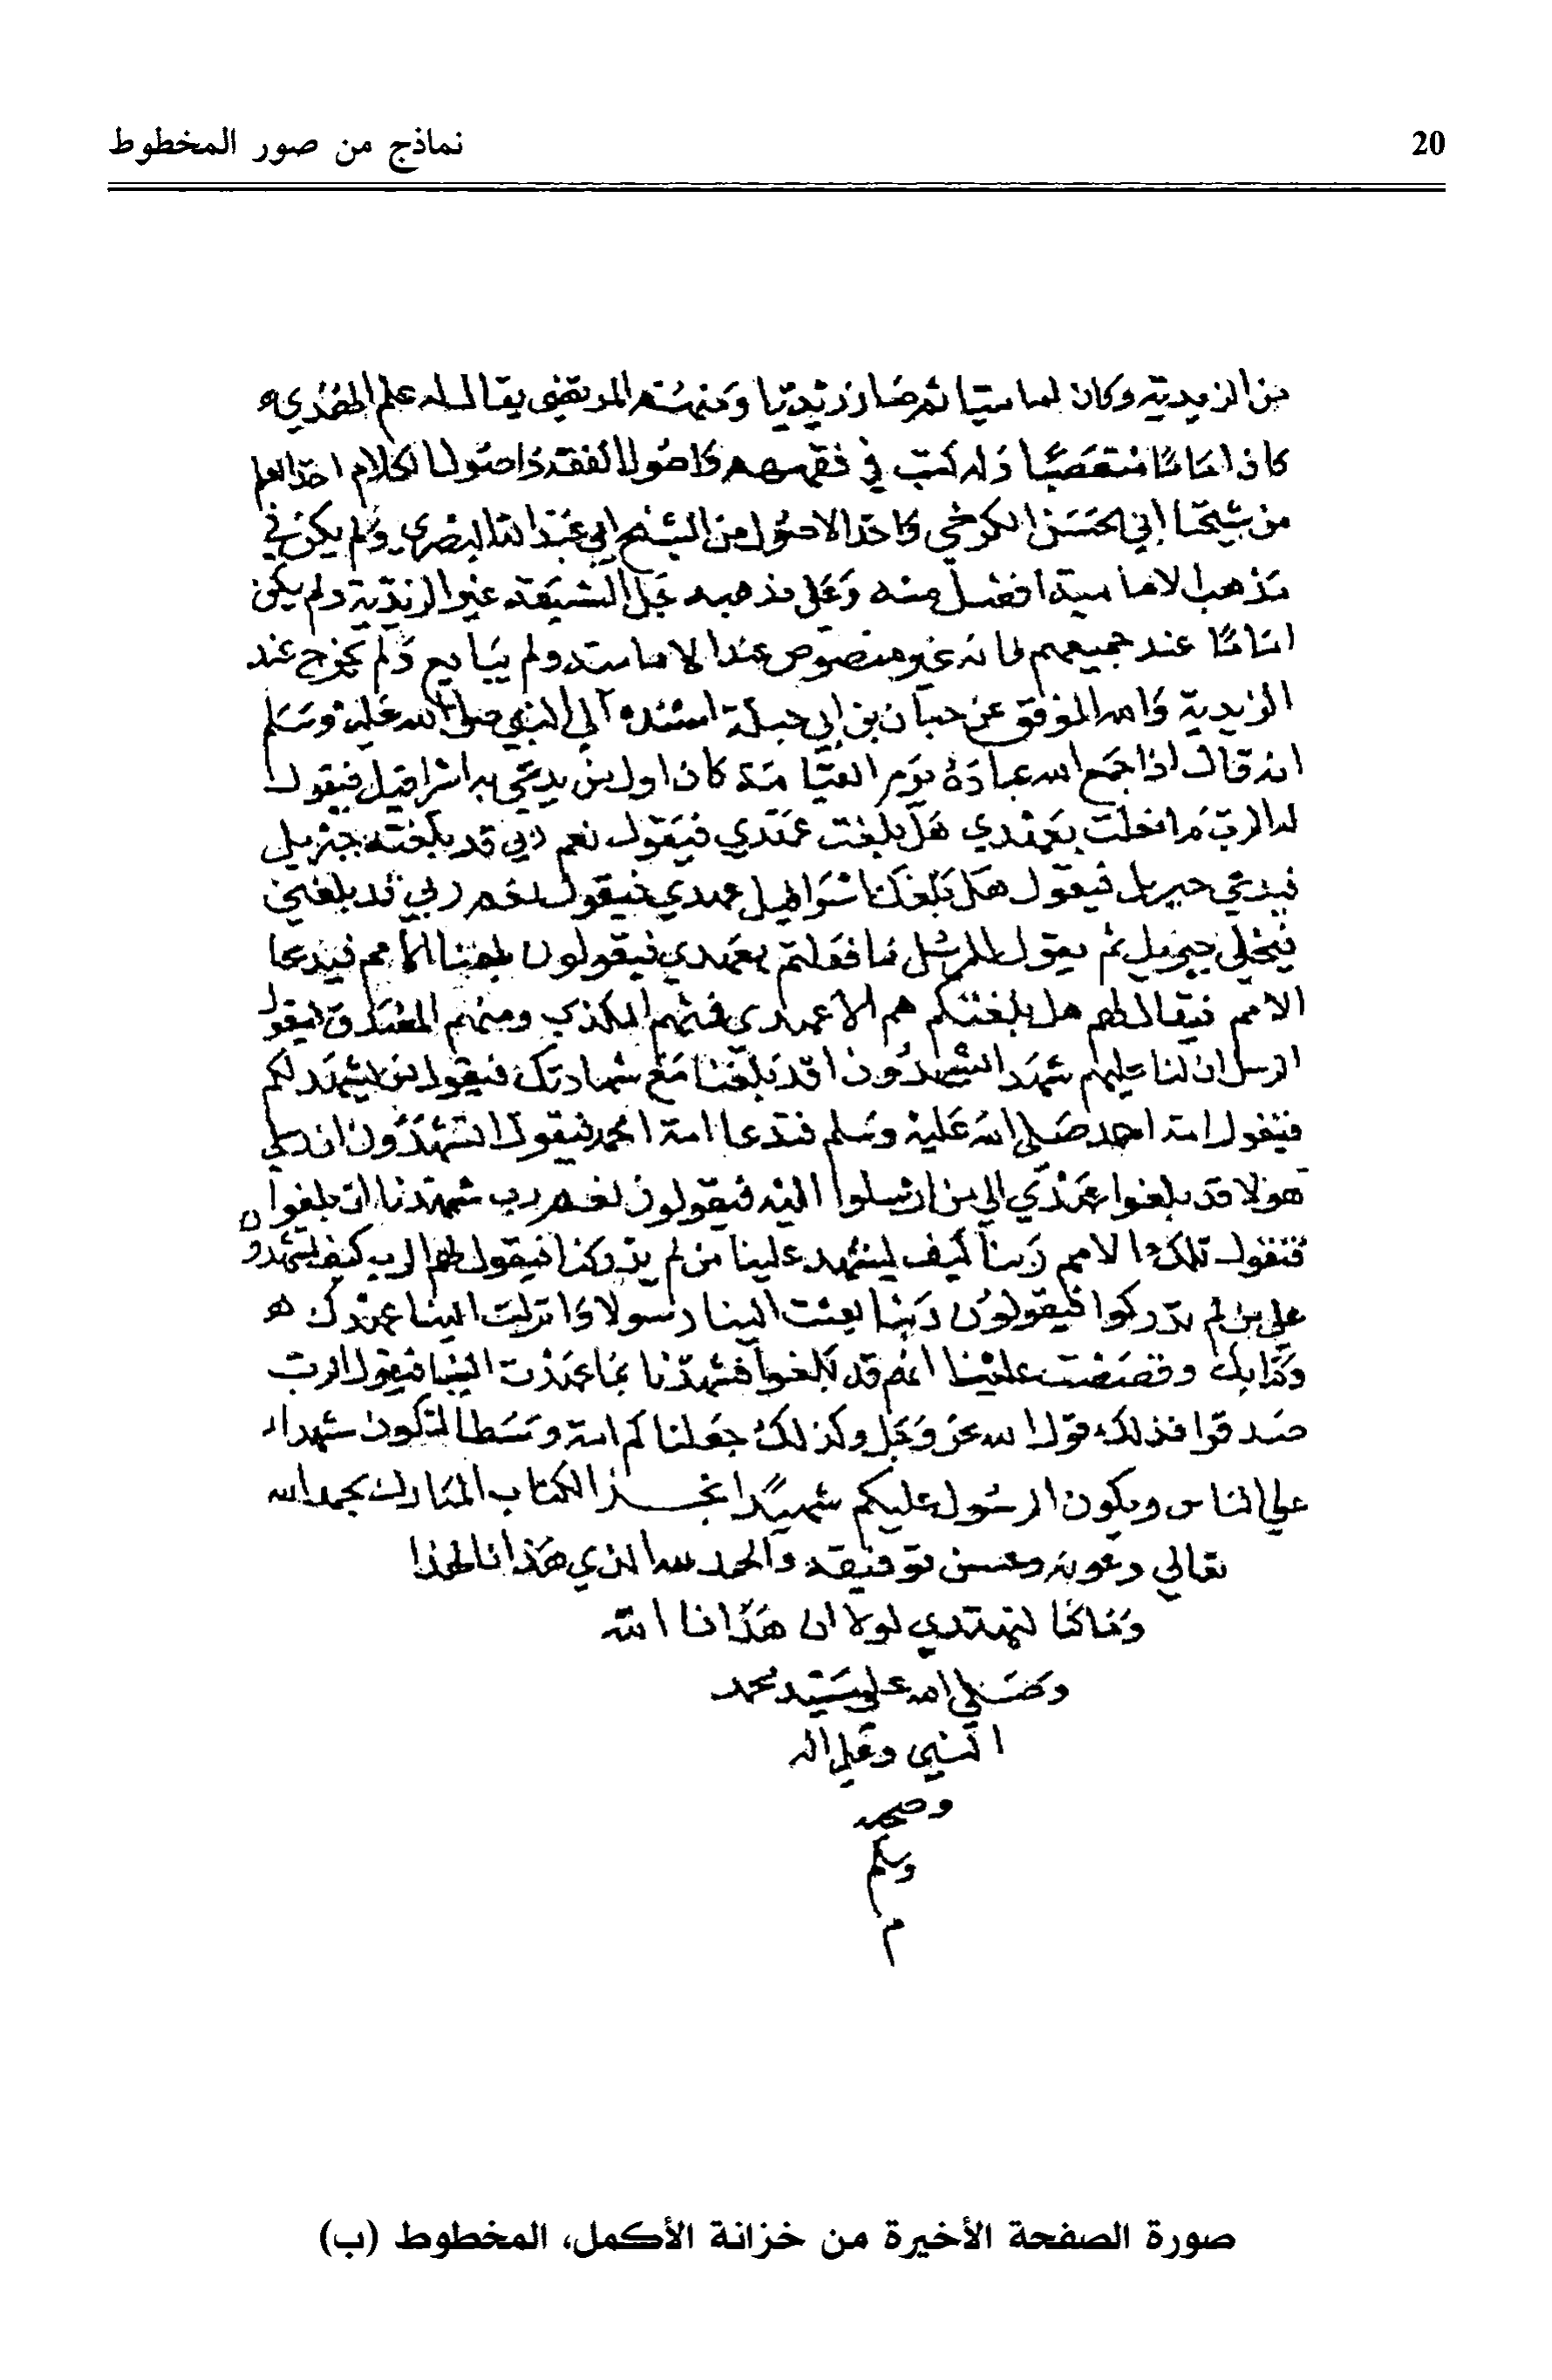 20
نماذج من صور المخطوط
من الزيدية وكان اماميا ثم صار زيديا ومنهم المرتضى يقال له علم الهدى
كان اماما متعصبا وله كتب في فقههم واصول الفقه واصول الكلام اخذ العلم
من شيخنا ابي الحسن الكرخي واخذ الاصول من الشيخ ابي عبد الله البصري ولم يكن في
مذهب الامامية افضل منه وعلى مذهبه جل الشيعة غير الزيدية ولم يكن
اماما عند جميعهم فانه غير منصوص عند الامامية ولم يبايع ولم يخرج عند
الزيدية والله الموفق عن حبان بن ابي جبلة اسنده الى النبي صلى الله عليه وسلم
انه قال اذا جمع الله عباده يوم القيامة كان اول من يدعى به اسرافيل فيقول
له الرب ما فعلت بعهدي هل بلغت عهدي فيقول نعم ربي قد بلغته جبريل
فيدعى جبريل فيقول هل بلغك اسرافيل عهدي فيقول نعم ربي قد بلغني
فيخلى جبريل ثم يقول للرسل ما فعلتم بعهدي فيقولون بلغنا الامم فيدعا
الامم فيقال لهم هل بلغتكم هم الا عهدي فمنهم المكذب ومنهم المصدق فيقول
الرسل ان لنا عليهم شهدا الشهدون ا قد بلغنا مع شهادتك فيقول من يشهد لكم
فيقول امة احمد صلى الله عليه وسلم فتدعا امة احمد فيقول اتشهدون ان رسلي
هولا قد بلغوا عهدي الى من ارسلوا اليه فيقولون نعم رب شهدنا ان بلغوا
فتقول تلك الامم ربنا كيف يشهد علينا من لم يدركنا فيقول لهم الرب كيف تشهدون
على من لم تدركوا فيقولون ربنا بعثت الينا رسولا وانزلت الينا عهدك ه
وكتابك وقصصت علينا انهم قد بلغوا فشهدنا بما عهدت الينا فيقول الرب
صدقوا فذلك قول الله عز وجل وكذلك جعلناكم امة وسطا لتكون شهداء
على الناس ويكون الرسول عليكم شهيدا نجز الكتاب المبارك بحمد الله
تعالى وعونه وحسن توفيقه والحمد لله الذي هدانا لهذا
وما كنا لنهتدي لولا ان هدانا الله
وصلى الله على سيد محمد
النبي وعلى اله
وصحبه
وسلم
م
صورة الصفحة الأخيرة من خزانة الأكمل، المخطوط (ب)